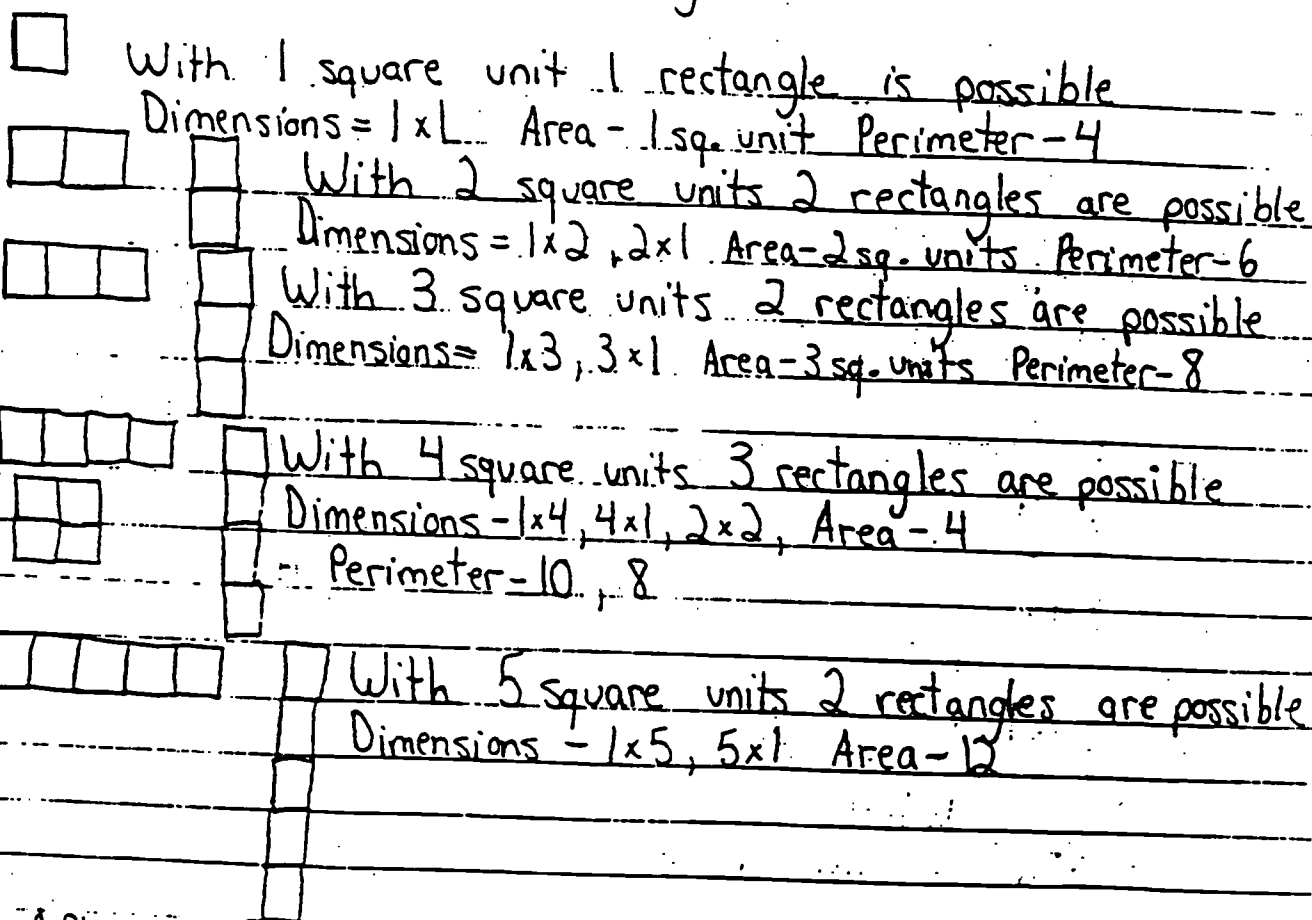 With 1 square unit 1 rectangle is possible
Dimensions = 1x1 Area - 1 sq. unit Perimeter - 4
With 2 square units 2 rectangles are possible
Dimensions = 1x2, 2x1 Area - 2 sq. units Perimeter - 6
With 3 square units 2 rectangles are possible
Dimensions = 1x3, 3x1 Area - 3 sq. units Perimeter - 8
With 4 square units 3 rectangles are possible
Dimensions - 1x4, 4x1, 2x2, Area - 4
Perimeter - 10, 8
With 5 square units 2 rectangles are possible
Dimensions - 1x5, 5x1 Area - 12